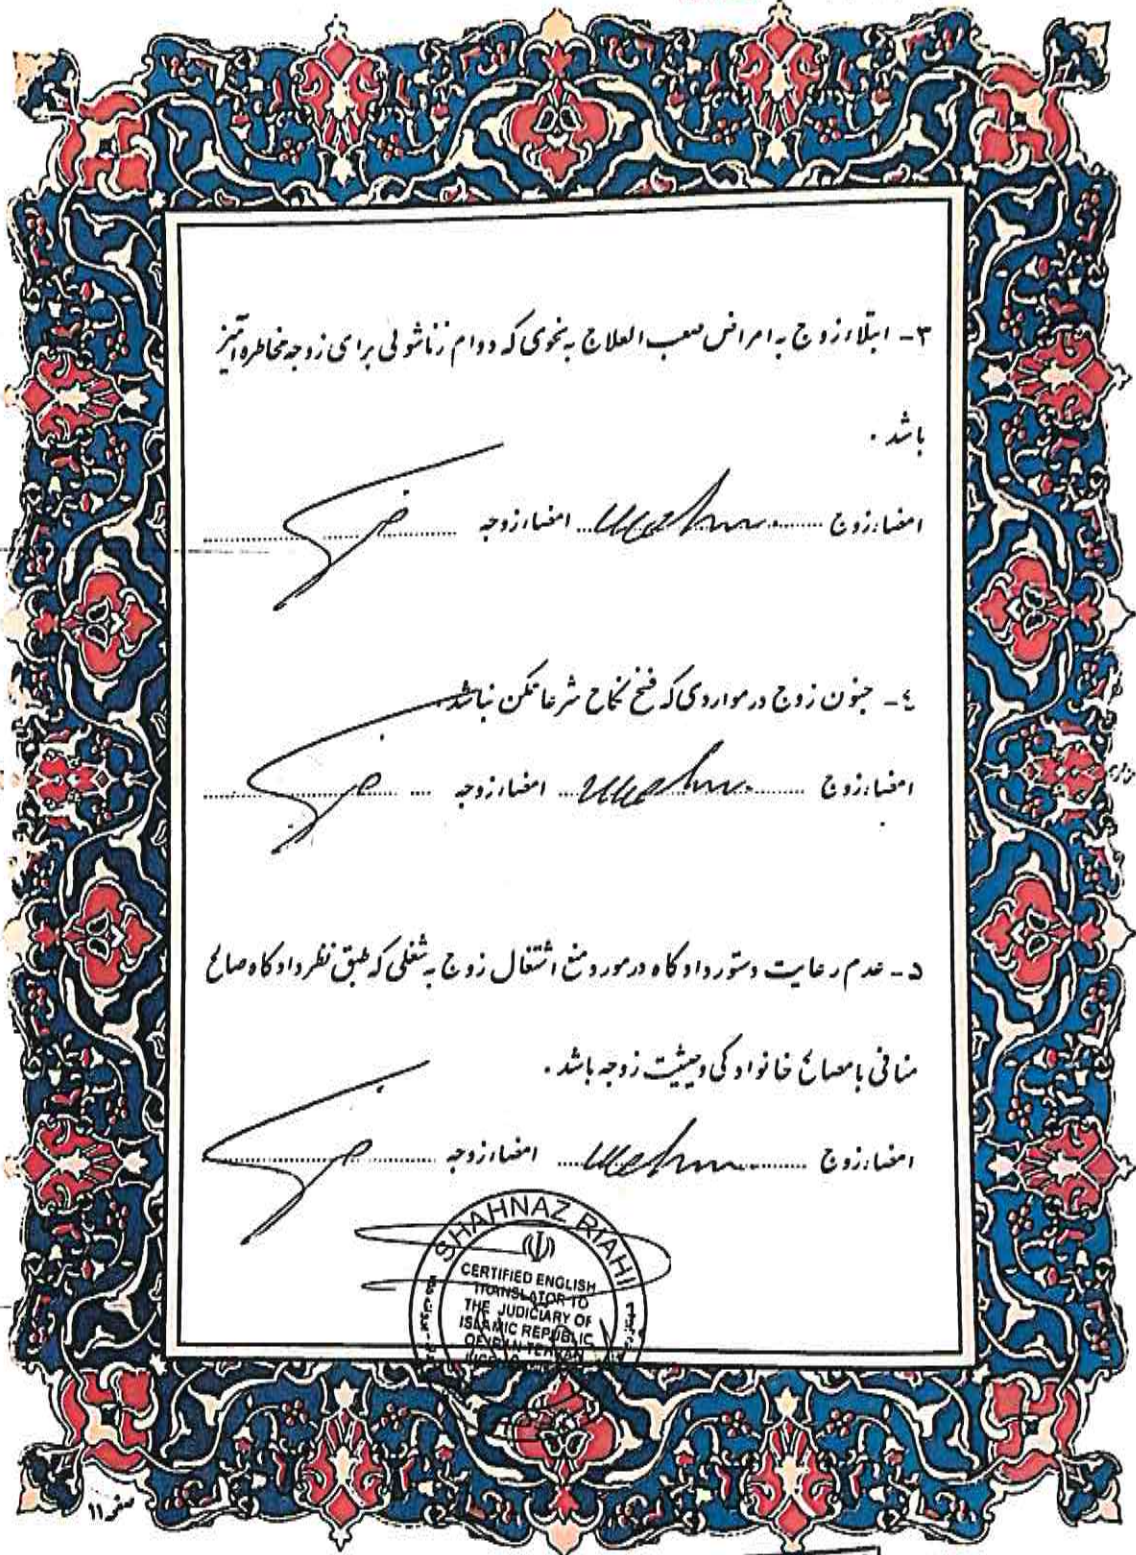 ۳- ابتلاء زوج به امراض صعب العلاج بنحوی که دوام زناشوئی برای زوجه مخاطره آمیز
باشد .
امضاء زوج .......... امضاء زوجه ..........
٤- جنون زوج در مواردی که فسخ نکاح شرعا ممکن نباشد.
امضاء زوج .......... امضاء زوجه ..........
۵- عدم رعایت دستور دادگاه در مورد منع اشتغال زوج به شغلی که طبق نظر دادگاه صالح
منافی با مصالح خانوادگی و حیثیت زوجه باشد .
امضاء زوج .......... امضاء زوجه ..........
SHAHNAZ RIAHI
CERTIFIED ENGLISH
TRANSLATOR TO
THE JUDICIARY OF
ISLAMIC REPUBLIC
OF IRAN-TEHRAN
صفحه ۱۱